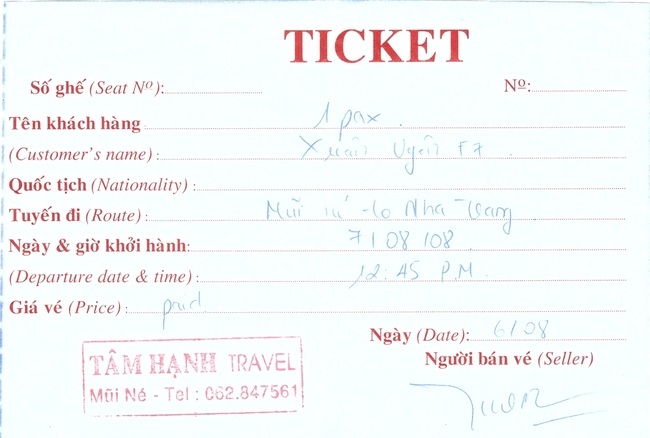 TICKET
Số ghế (Seat Nº): Nº:
Tên khách hàng 1 pax
(Customer's name) : Xuân Uyên F7
Quốc tịch (Nationality) :
Tuyến đi (Route) : Mũi né to Nha Trang
Ngày & giờ khởi hành: 7/08/08
(Departure date & time) : 12:45 P.M.
Giá vé (Price) : paid
Ngày (Date): 6/08
Người bán vé (Seller)
TÂM HẠNH TRAVEL
Mũi Né - Tel : 062.847561